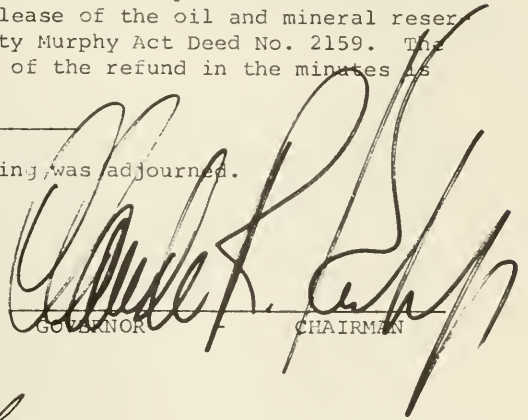 lease of the oil and mineral reser-
ty Murphy Act Deed No. 2159. The
of the refund in the minutes is
ing was adjourned.
Claude R. Kirk, Jr.
GOVERNOR - CHAIRMAN